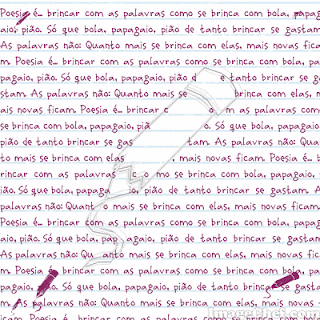 Poesia é... brincar com as palavras como se brinca com bola, papag
aio, pião. Só que bola, papagaio, pião de tanto brincar se gastam.
As palavras não: Quanto mais se brinca com elas, mais novas fica
m. Poesia é... brincar com as palavras como se brinca com bola, pa
pagaio, pião. Só que bola, papagaio, pião d e tanto brincar se ga
stam. As palavras não: Quanto mais se brinca com elas, m
ais novas ficam. Poesia é... brincar c o m as palavras como
se brinca com bola, papagaio, piã o. Só que bola, papagaio,
pião de tanto brincar se gas tam. As palavras não: Quan
to mais se brinca com elas , mais novas ficam. Poesia é... b
rincar com as palavras c o mo se brinca com bola, papagaio, p
ião. Só que bola, papaga io, pião de tanto brincar se gastam. A
s palavras não: Quant o mais se brinca com elas, mais novas ficam.
Poesia é... brincar com as palavras como se brinca com bola, papag
aio, pião. Só que bola, pap agaio, pião de tanto brincar se gastam.
As palavras não: Qu anto mais se brinca com elas, mais novas fica
m. Poesia é... brincar com as palavras como se brinca com bola, pa
pagaio, pião. Só que bola, papagaio, pião de tanto brincar se gasta
m. As palavras não: Quanto mais se brinca com elas, mais novas
ImageChef.com